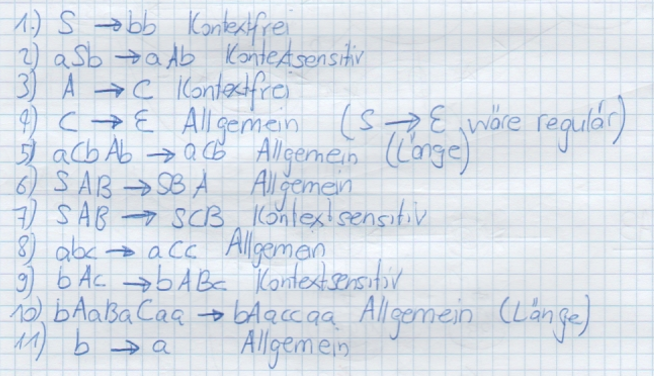 1.) S → bb Kontextfrei
2) aSb → aAb Kontextsensitiv
3) A → C Kontextfrei
4) C → Ɛ Allgemein (S → Ɛ wäre regulär)
5) aCbAb → aCb Allgemein (Länge)
6) SAB → SBA Allgemein
7) SAB → SCB Kontextsensitiv
8) abc → aCc Allgemein
9) bAc → bABc Kontextsensitiv
10) bAaBaCaa → bAaccaa Allgemein (Länge)
11) b → a Allgemein